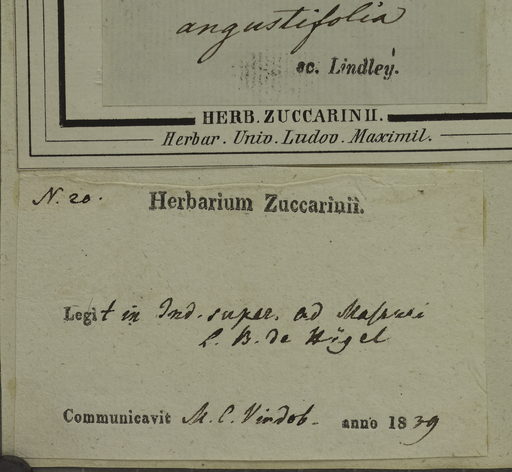 angustifolia
sc. Lindley.
HERB. ZUCCARINII.
Herbar. Univ. Ludov. Maximil.
N. 20.
Herbarium Zuccarinii.
Legit in Ind. super. ad Massuri
L. B. de Hügel
Communicavit M. C. Vindob. anno 1839